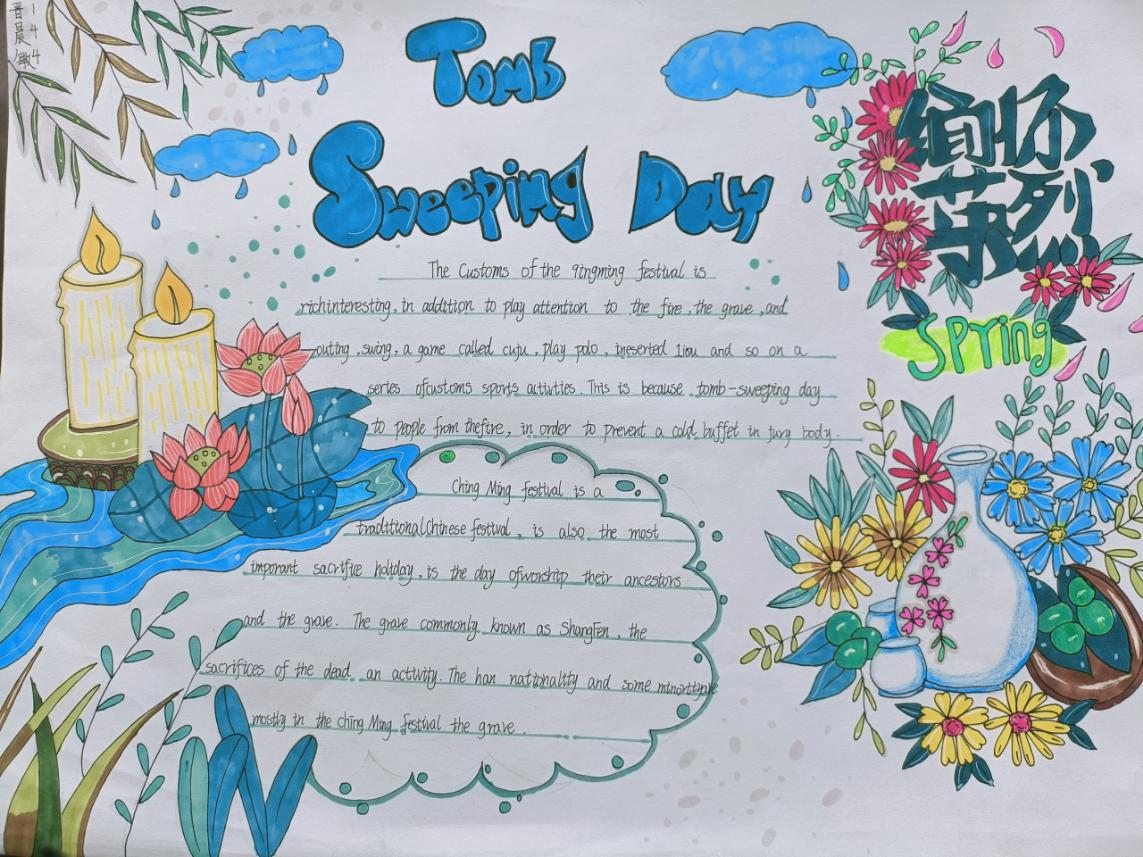 144
晋晨敏
Tomb
Sweeping Day
缅怀
英烈
Spring
The Customs of the qingming festival is
richinteresting, in addition to play attention to the fire, the grave, and
outing, swing, a game called cuju, play polo, ineserted liou and so on a
series ofcustoms sports activties. This is because tomb-sweeping day
to people from thefire, in order to prevent a cold buffet in jury body.
Ching Ming festival is a
traditionalChinese festival, is also the most
imporant sacrifice holiday, is the day ofworship their ancestors
and the grave. The grave commonly known as ShangFen, the
sacrifices of the dead. an activity. The han nationality and some
mostly in the ching Ming festival the grave.